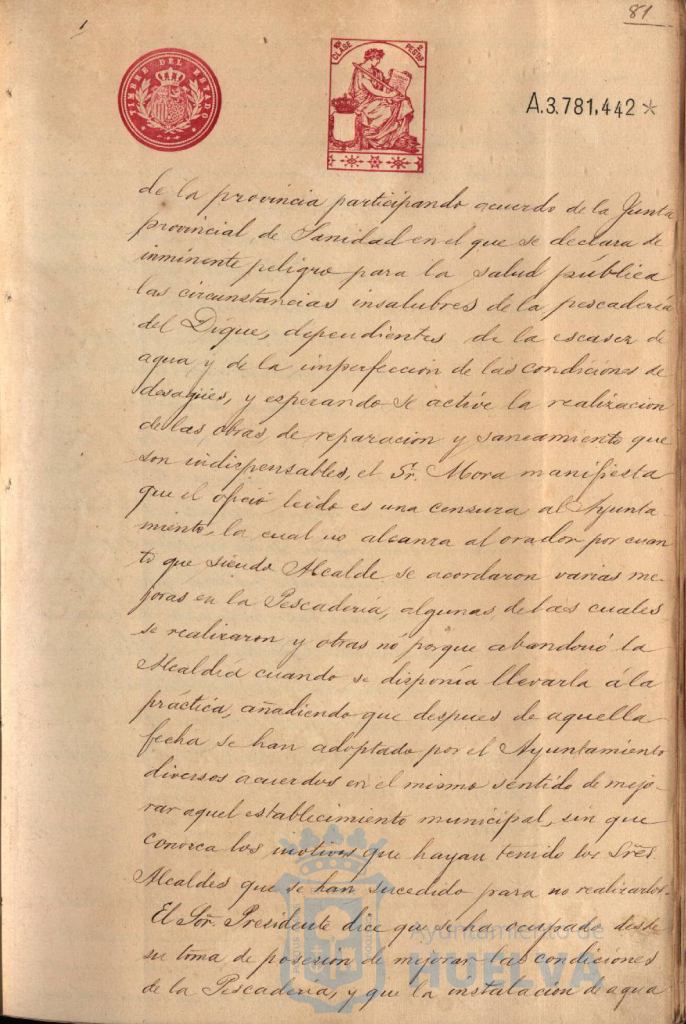 81
TIMBRE DEL ESTADO
CLASE 2 PESETAS
A.3.781,442*
de la provincia participando acuerdo de la Junta
provincial de Sanidad en el que se declara de
inminente peligro para la salud pública
las circunstancias insalubres de la pescadería
del Dique, dependientes de la escasez de
agua y de la imperfección de las condiciones de
desagües, y esperando se active la realizacion
de las obras de reparación y saneamiento que
son indispensables, el Sr. Mora manifiesta
que el oficio leido es una censura al Ayunta-
miento, la cual no alcanza al orador por cuan
to que siendo Alcalde se acordaron varias me-
joras en la Pescadería, algunas de las cuales
se realizaron y otras nó porque abandonó la
Alcaldía cuando se disponía llevarla á la
práctica, añadiendo que despues de aquella
fecha se han adoptado por el Ayuntamiento
diversos acuerdos en el mismo sentido de mejo-
rar aquel establecimiento municipal, sin que
conozca los motivos que hayan tenido los Sres.
Alcaldes que se han sucedido para no realizarlos.
El Sor. Presidente dice que se ha ocupado desde
su toma de posesión de mejorar las condiciones
de la Pescadería, y que la instalación de agua
Ayuntamiento de
HUELVA